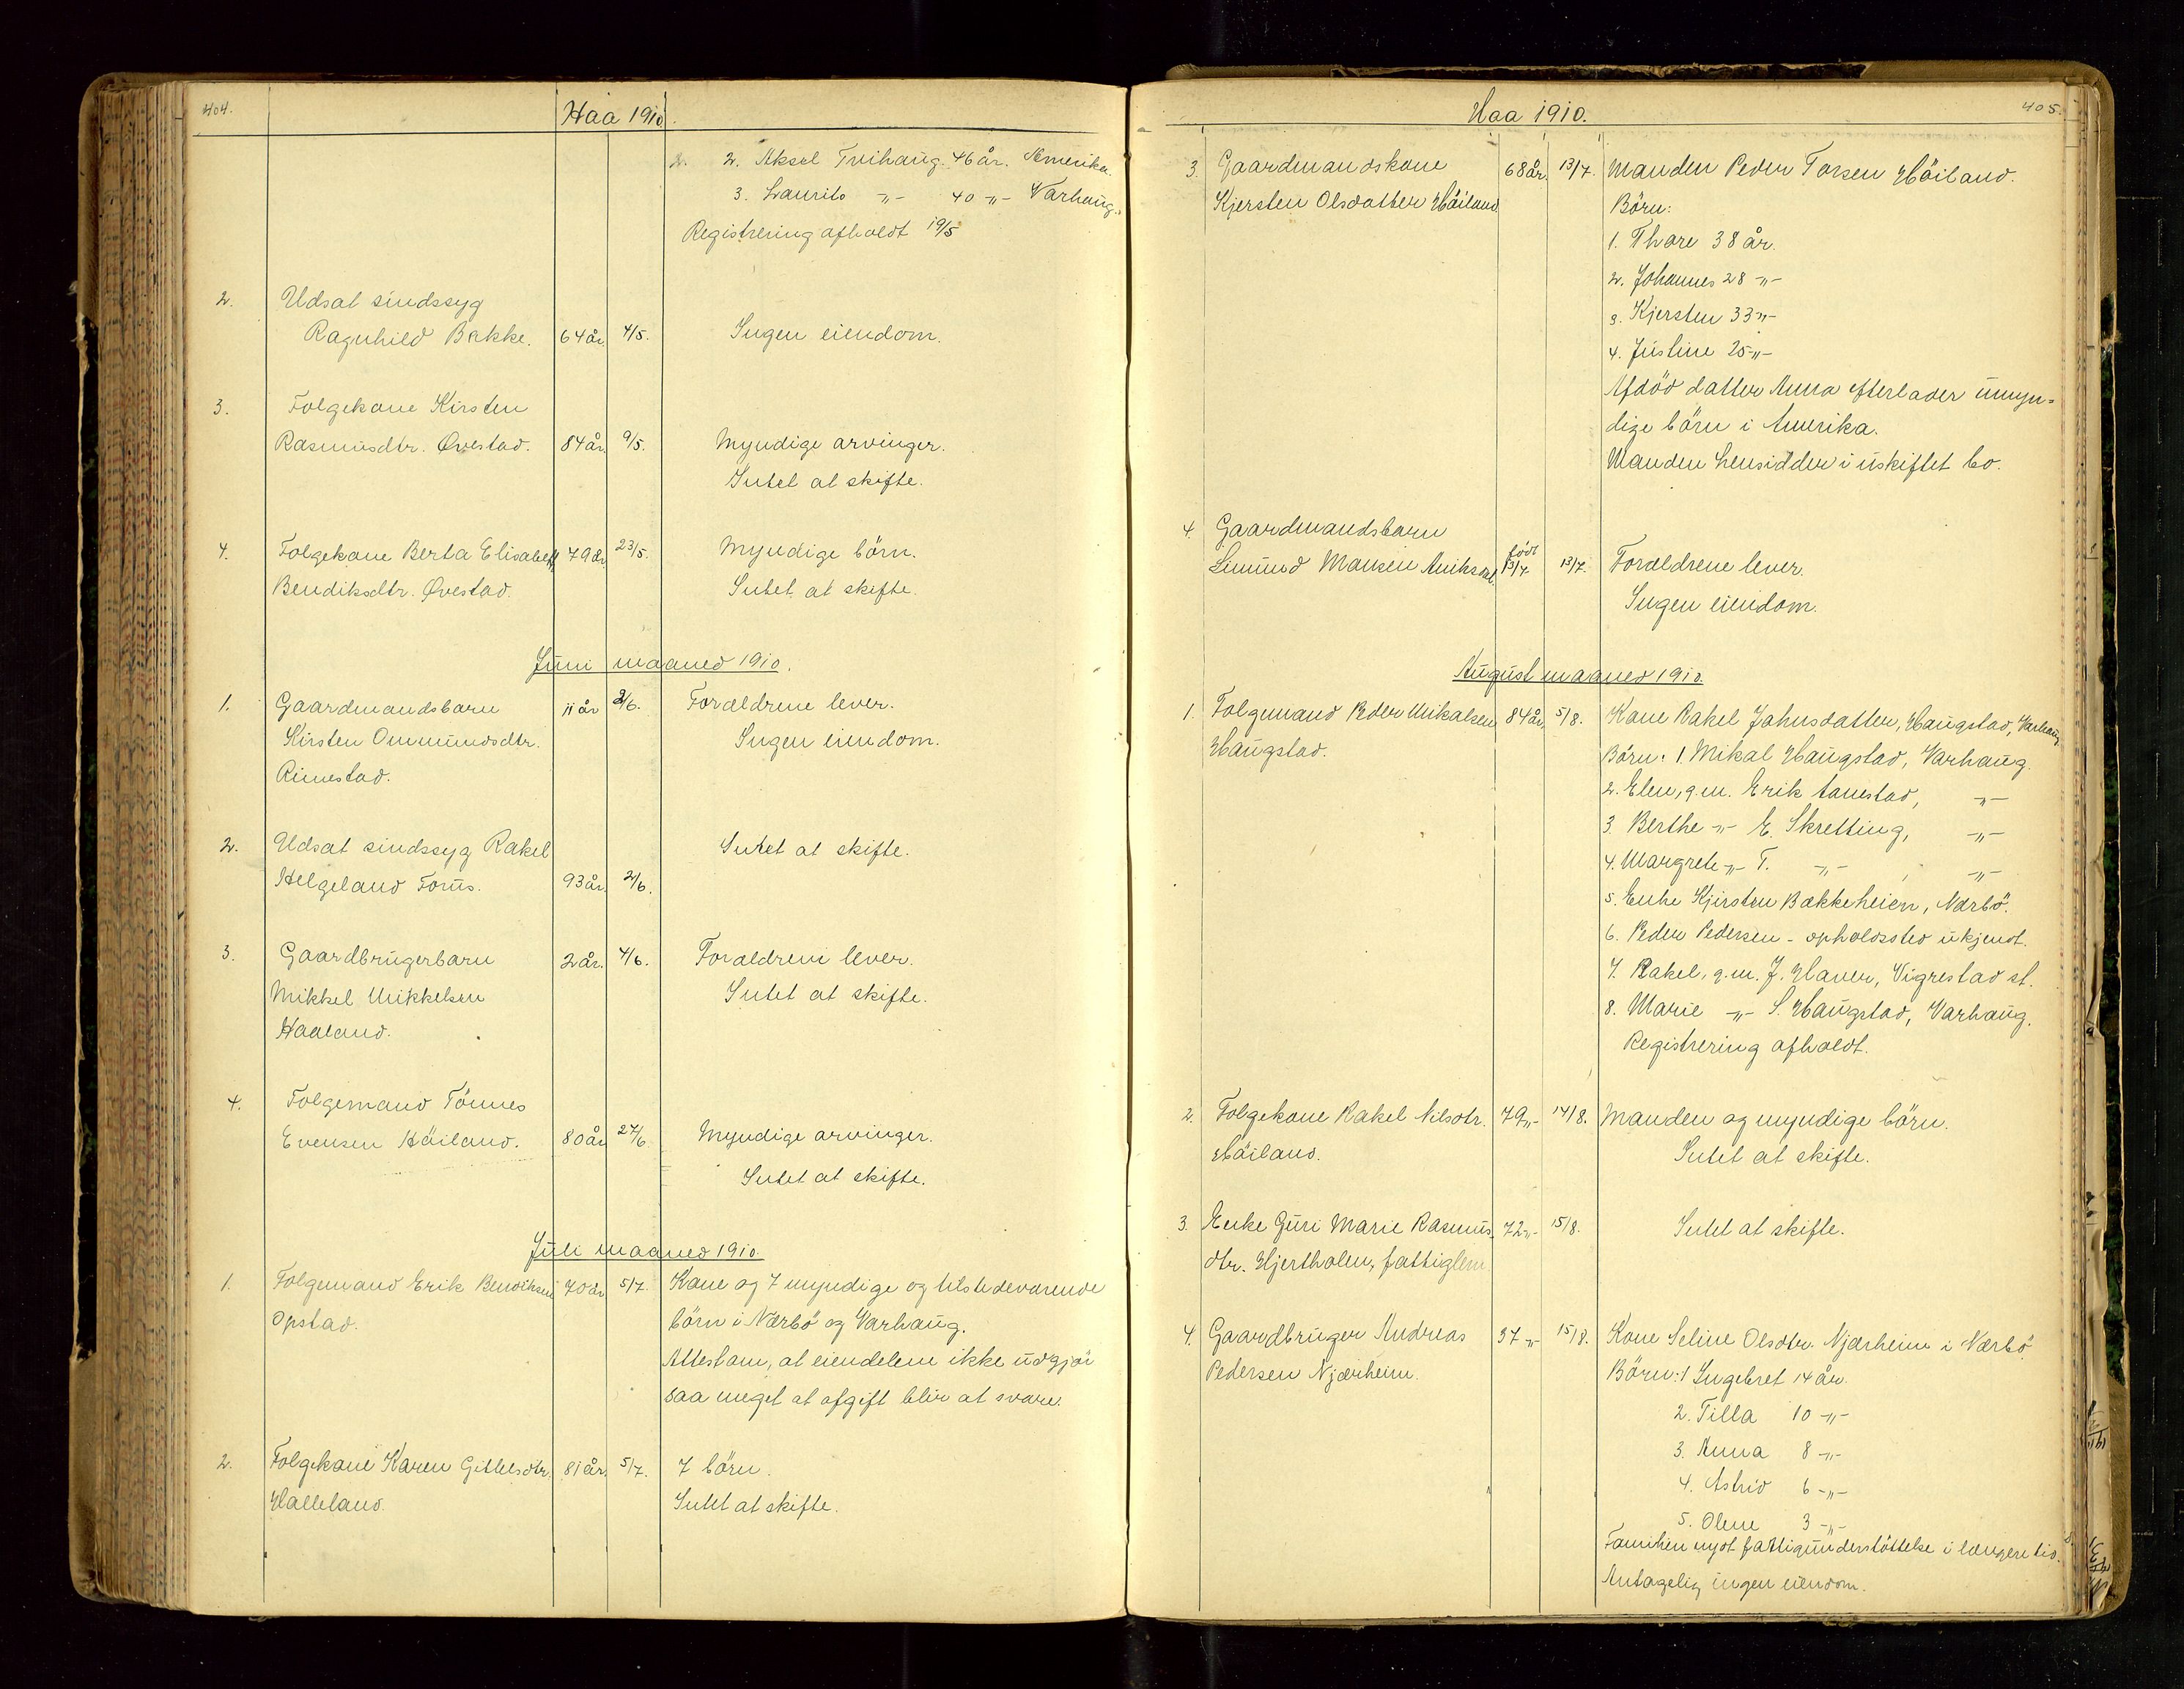 404.
Haa 1910.
2. Aksel Treihaug. 46 år. Amerika.
3. Laurits -„- 40 -„- Varhaug.
Registrering afholdt 19/5
2. Udsat sindssyg
Ragnhild Bakke. 64 år. 4/5. Ingen eiendom.
3. Folgekone Kirsten
Rasmusdtr. Øvestad. 84 år. 9/5. Myndige arvinger.
Intet at skifte.
4. Folgekone Berta Elisabeth 79 år. 23/5. Myndige börn.
Bendiksdtr. Øvestad. Intet at skifte.
Juni maaned 1910.
1. Gaardmandsbarn 11 år 2/6. Forældrene lever.
Kirsten Ommundsdtr. Ingen eiendom.
Rimestad.
2. Udsat sindssyg Rakel Intet at skifte.
Helgeland Forus. 93 år. 2/6.
3. Gaardbrugerbarn 2 år. 4/6. Forældrene lever.
Mikkel Mikkelsen Intet at skifte.
Haaland.
4. Folgemand Tönnes
Evensen Höiland. 80 år 27/6. Myndige arvinger.
Intet at skifte.
Juli maaned 1910.
1. Folgemand Erik Bendiksen 70 år 5/7. Kone og 7 myndige og tilstedeværende
Opstad. börn i Nærbö og Varhaug.
Attestam, at eiendelene ikke udgjör
saa meget at afgift blir at svare.
2. Folgekone Karen Gittelsdtr. 81 år. 5/7. 7 börn.
Halleland. Intet at skifte.
Haa 1910.
405.
3. Gaardmandskone 68 år. 13/7. Manden Peder Torsen Höiland.
Kjersten Olsdatter Höiland. Börn:
1. Thore 38 år.
2. Johannes 28 -„-
3. Kjersten 33 -„-
4. Justine 25 -„-
Afdöd datter Anna efterlader umyn=
dige börn i Amerika.
Manden hensidder i uskiftet bo.
4. Gaardmandsbarn
Simund Mansen födt 13/7 13/7. Forældrene lever.
Ingen eiendom.
August maaned 1910.
1. Folgemand Peder Mikalsen 84 år. 5/8. Kone Rakel Jahnsdatter, Haugstad, Varhaug
Haugstad. Börn: 1. Mikal Haugstad, Varhaug.
2. Elen, g.m. Erik Aanestad, -„-
3. Berthe -„- E. Skretting, -„-
4. Margrete -„- T. -„- -„-
5. Enke Kjersten Bakkeheien, Nærbö.
6. Peder Pedersen - opholdssted ukjendt.
7. Rakel, g.m. J. Haver, Vigrestad st.
8. Marie -„- S. Haugstad, Varhaug.
Registrering afholdt.
2. Folgekone Rakel Nilsdtr. 79 -„- 14/8. Manden og myndige börn.
Höiland. Intet at skifte.
3. Enke Guri Marie Rasmus- 72 -„- 15/8. Intet at skifte.
dtr. Hjertholen, fattiglem.
4. Gaardbruger Andreas 37 -„- 15/8. Kone Seline Olsdtr. Njærheim i Nærbö.
Pedersen Njærheim. Börn: 1 Ingebret 14 år.
2. Tilla 10 -„-
3. Anna 8 -„-
4. Astrid 6 -„-
5. Olene 3 -„-
Familien nydt fattigunderstöttelse i længere tid.
Antagelig ingen eiendom.